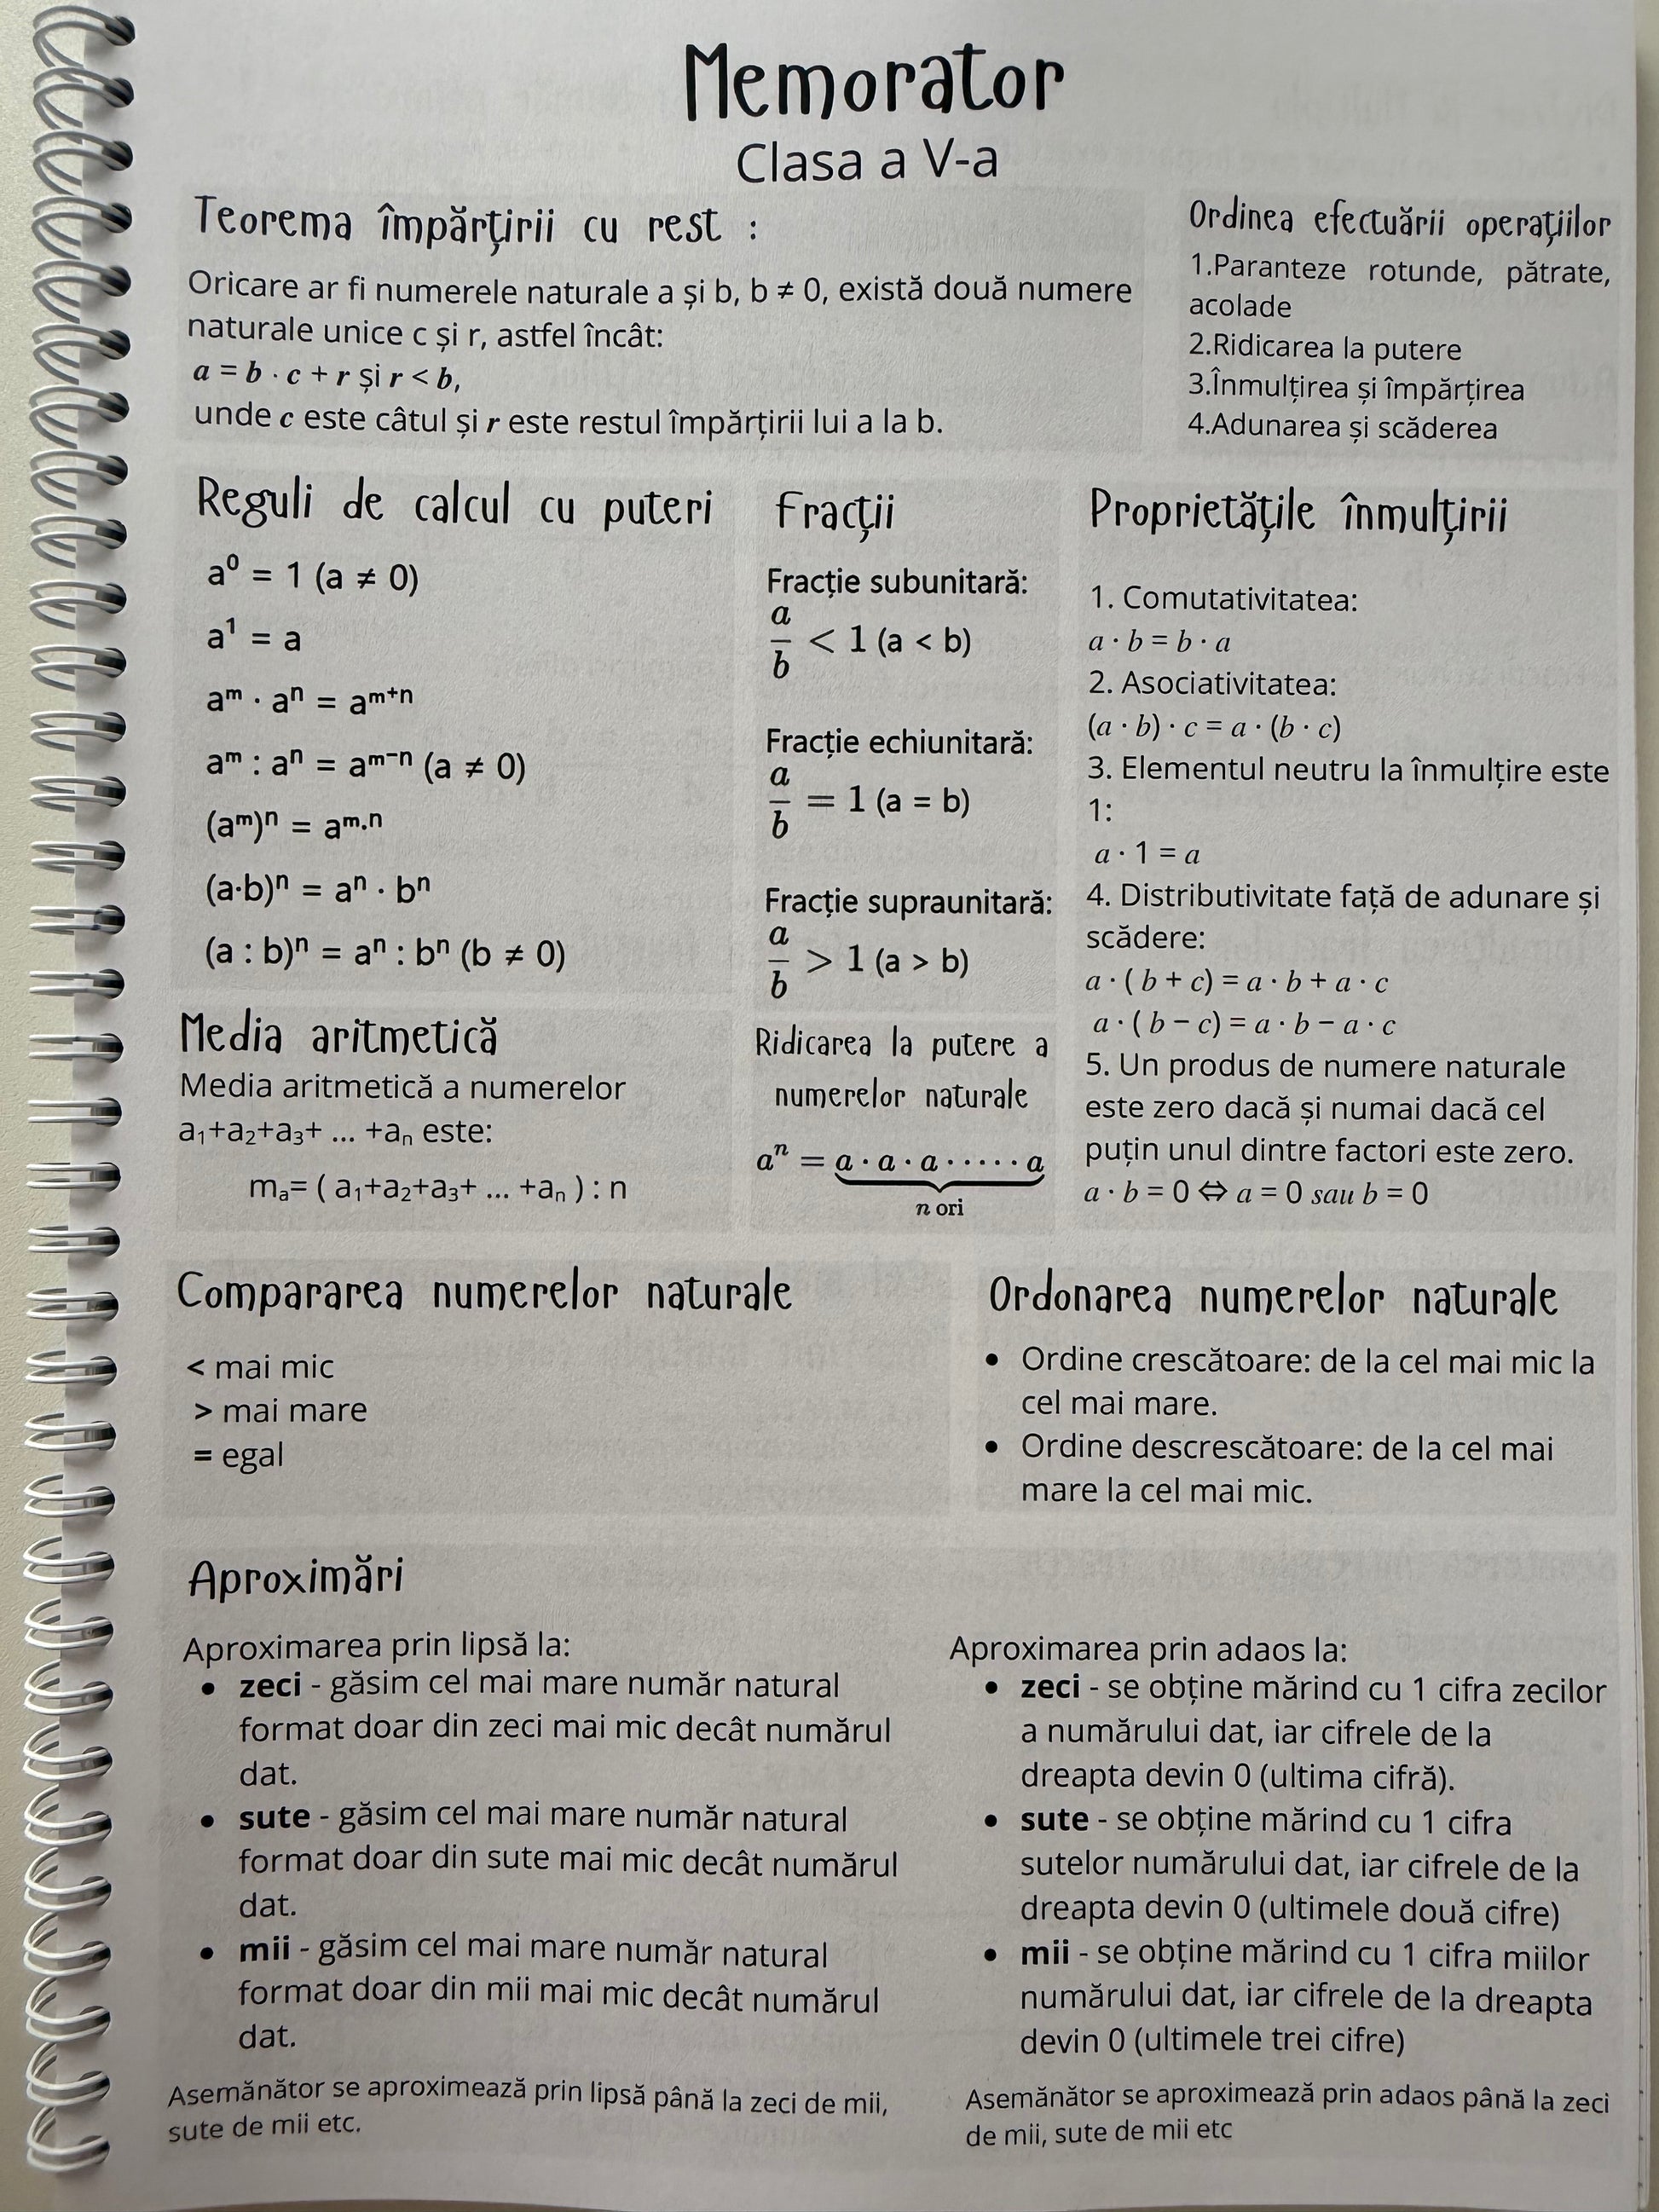 Memorator
Clasa a V-a
Teorema împărțirii cu rest :
Oricare ar fi numerele naturale a și b, b ≠ 0, există două numere
naturale unice c și r, astfel încât:
a = b · c + r și r < b,
unde c este câtul și r este restul împărțirii lui a la b.
Ordinea efectuării operațiilor
1.Paranteze rotunde, pătrate,
acolade
2.Ridicarea la putere
3.Înmulțirea și împărțirea
4.Adunarea și scăderea
Reguli de calcul cu puteri
a⁰ = 1 (a ≠ 0)
a¹ = a
aᵐ · aⁿ = aᵐ⁺ⁿ
aᵐ : aⁿ = aᵐ⁻ⁿ (a ≠ 0)
(aᵐ)ⁿ = aᵐ·ⁿ
(a·b)ⁿ = aⁿ · bⁿ
(a : b)ⁿ = aⁿ : bⁿ (b ≠ 0)
Fracții
Fracție subunitară:
a/b < 1 (a < b)
Fracție echiunitară:
a/b = 1 (a = b)
Fracție supraunitară:
a/b > 1 (a > b)
Proprietățile înmulțirii
1. Comutativitatea:
a · b = b · a
2. Asociativitatea:
(a · b) · c = a · (b · c)
3. Elementul neutru la înmulțire este
1:
a · 1 = a
4. Distributivitate față de adunare și
scădere:
a · ( b + c) = a · b + a · c
a · ( b − c) = a · b − a · c
5. Un produs de numere naturale
este zero dacă și numai dacă cel
puțin unul dintre factori este zero.
a · b = 0 ⇔ a = 0 sau b = 0
Media aritmetică
Media aritmetică a numerelor
a₁+a₂+a₃+ ... +aₙ este:
mₐ= ( a₁+a₂+a₃+ ... +aₙ ) : n
Ridicarea la putere a
numerelor naturale
aⁿ = a · a · a · · · · · a
n ori
Compararea numerelor naturale
< mai mic
> mai mare
= egal
Ordonarea numerelor naturale
• Ordine crescătoare: de la cel mai mic la
cel mai mare.
• Ordine descrescătoare: de la cel mai
mare la cel mai mic.
Aproximări
Aproximarea prin lipsă la:
• zeci - găsim cel mai mare număr natural
format doar din zeci mai mic decât numărul
dat.
• sute - găsim cel mai mare număr natural
format doar din sute mai mic decât numărul
dat.
• mii - găsim cel mai mare număr natural
format doar din mii mai mic decât numărul
dat.
Asemănător se aproximează prin lipsă până la zeci de mii,
sute de mii etc.
Aproximarea prin adaos la:
• zeci - se obține mărind cu 1 cifra zecilor
a numărului dat, iar cifrele de la
dreapta devin 0 (ultima cifră).
• sute - se obține mărind cu 1 cifra
sutelor numărului dat, iar cifrele de la
dreapta devin 0 (ultimele două cifre)
• mii - se obține mărind cu 1 cifra miilor
numărului dat, iar cifrele de la dreapta
devin 0 (ultimele trei cifre)
Asemănător se aproximează prin adaos până la zeci
de mii, sute de mii etc